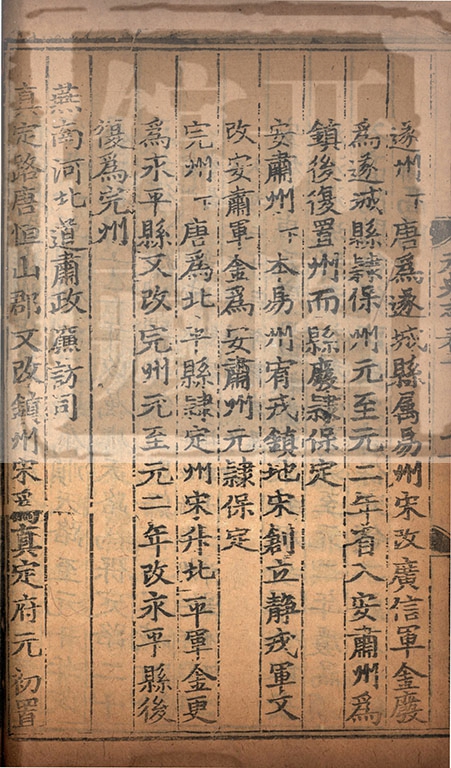 遂州下唐爲遂城縣属易州宋改廣信軍金廢
爲遂城縣隷保州元至元二年省入安肅州爲
鎮後復置州而縣廢隷保定
安肅州下本易州宥戎鎮地宋創立静戎軍又
改安肅軍金爲安肅州元隷保定
完州下唐爲北平縣隷定州宋升北平軍金更
爲永平縣又改完州元至元二年改永平縣後
復爲完州
燕南河北道肅政廉訪司
真定路唐恒山郡又改鎮州宋爲真定府元初置